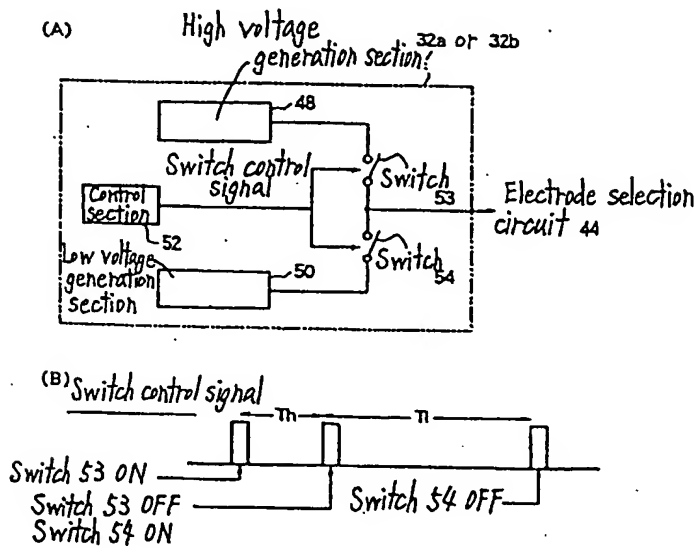 (A)
High voltage
generation section
32a or 32b
48
Switch control
signal
Switch
53
Control
section
52
Electrode selection
circuit 44
Switch
54
Low voltage
generation
section
50
(B) Switch control signal
Th
Tl
Switch 53 ON
Switch 53 OFF
Switch 54 ON
Switch 54 OFF